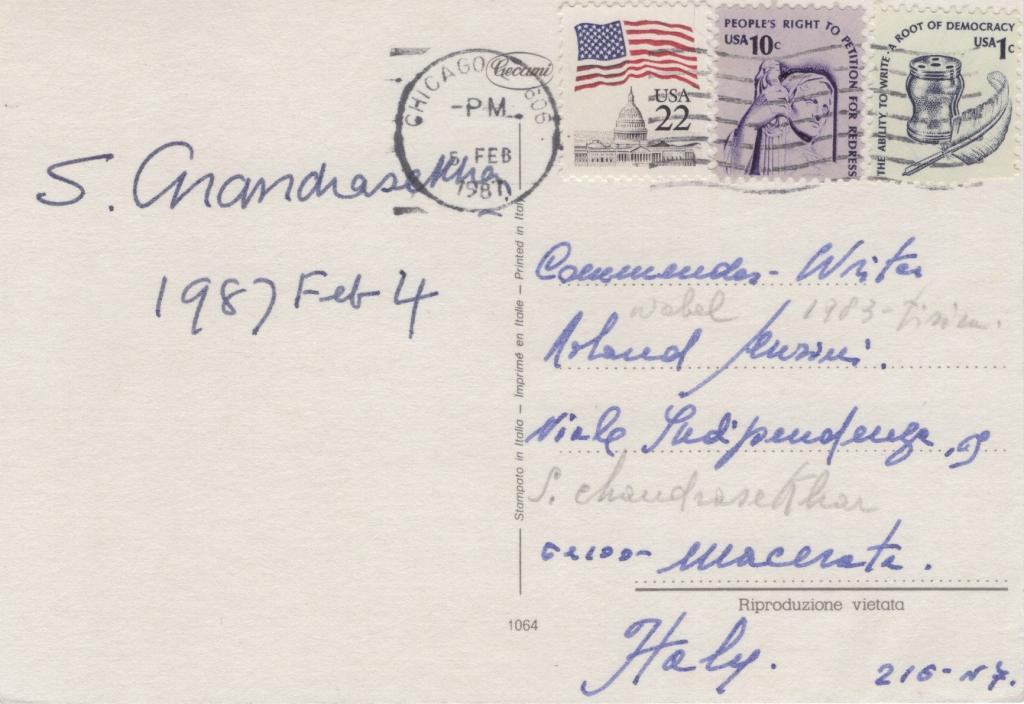 PEOPLE'S RIGHT TO PETITION FOR REDRESS
USA 10c
A ROOT OF DEMOCRACY
THE ABILITY TO WRITE·
USA 1c
USA
22
CHICAGO 606
Ceccami
-PM-
5 FEB
1987
S. Chandrasekhar
1987 Feb 4
Stampato in Italia – Imprimé en Italie – Printed in Italy
1064
Commendor- Writer
Nobel 1983-
Roland
Viale Indipendenza, 9
S. Chandrasekhar
62100- Macerata.
Riproduzione vietata
Italy.
216-N7.